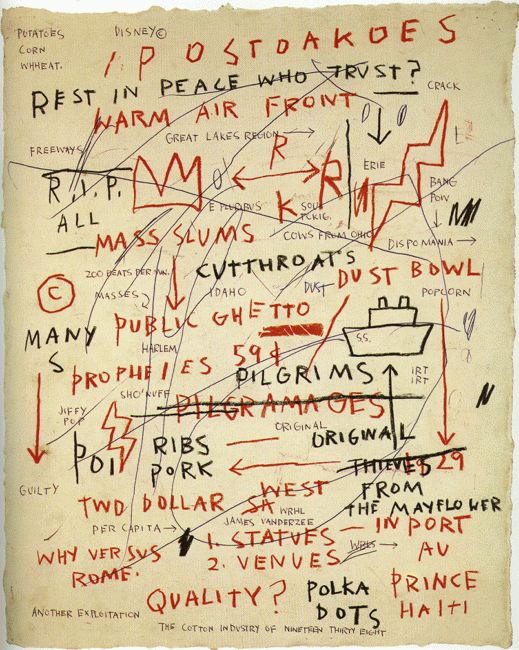 POTATOES
CORN
WHHEAT.
DISNEY©
POSTOAKOES
REST IN PEACE WHO TRUST?
CRACK
WARM AIR FRONT
GREAT LAKES REGION →
FREEWAYS
R
R
ERIE
R.I.P.
ALL
E PLURIBUS
K
BANG
POW
MASS SLUMS
COWS FROM OHIO
DISPOMANIA →
200 BEATS PER MIN.
CUTTHROATS
DUST BOWL
©
MASSES
IDAHO
DUST
POPCORN
MANY
S
PUBLIC GHETTO
S.S.
HARLEM
59¢
PROPHEIES
PILGRIMS
IRT
IRT
SHO'NUFF
PILGRAMAGES
JIFFY
POP
ORIGINAL
ORIGINAL
POI
RIBS
PORK
THIEVES
29
GUILTY
WEST
FROM
THE MAYFLOWER
TWO DOLLAR
SA
WRHL
JAMES VANDERZEE
PER CAPITA →
1. STATUES — IN PORT
2. VENUES
AU
WHY VERSUS
ROME.
PRINCE
HAITI
QUALITY?
POLKA
DOTS
ANOTHER EXPLOITATION
THE COTTON INDUSTRY OF NINETEEN THIRTY EIGHT